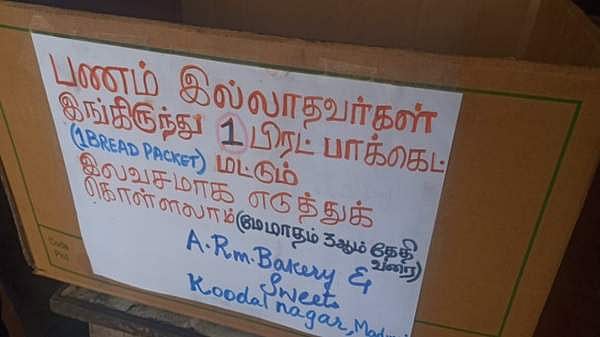 பணம் இல்லாதவர்கள்
இங்கிருந்து 1 பிரட் பாக்கெட்
(1 BREAD PACKET) மட்டும்
இலவசமாக எடுத்துக்
கொள்ளலாம் (மே மாதம் 3ஆம் தேதி
வரை)
A.R.m. Bakery &
Sweets
Koodal nagar,
Code